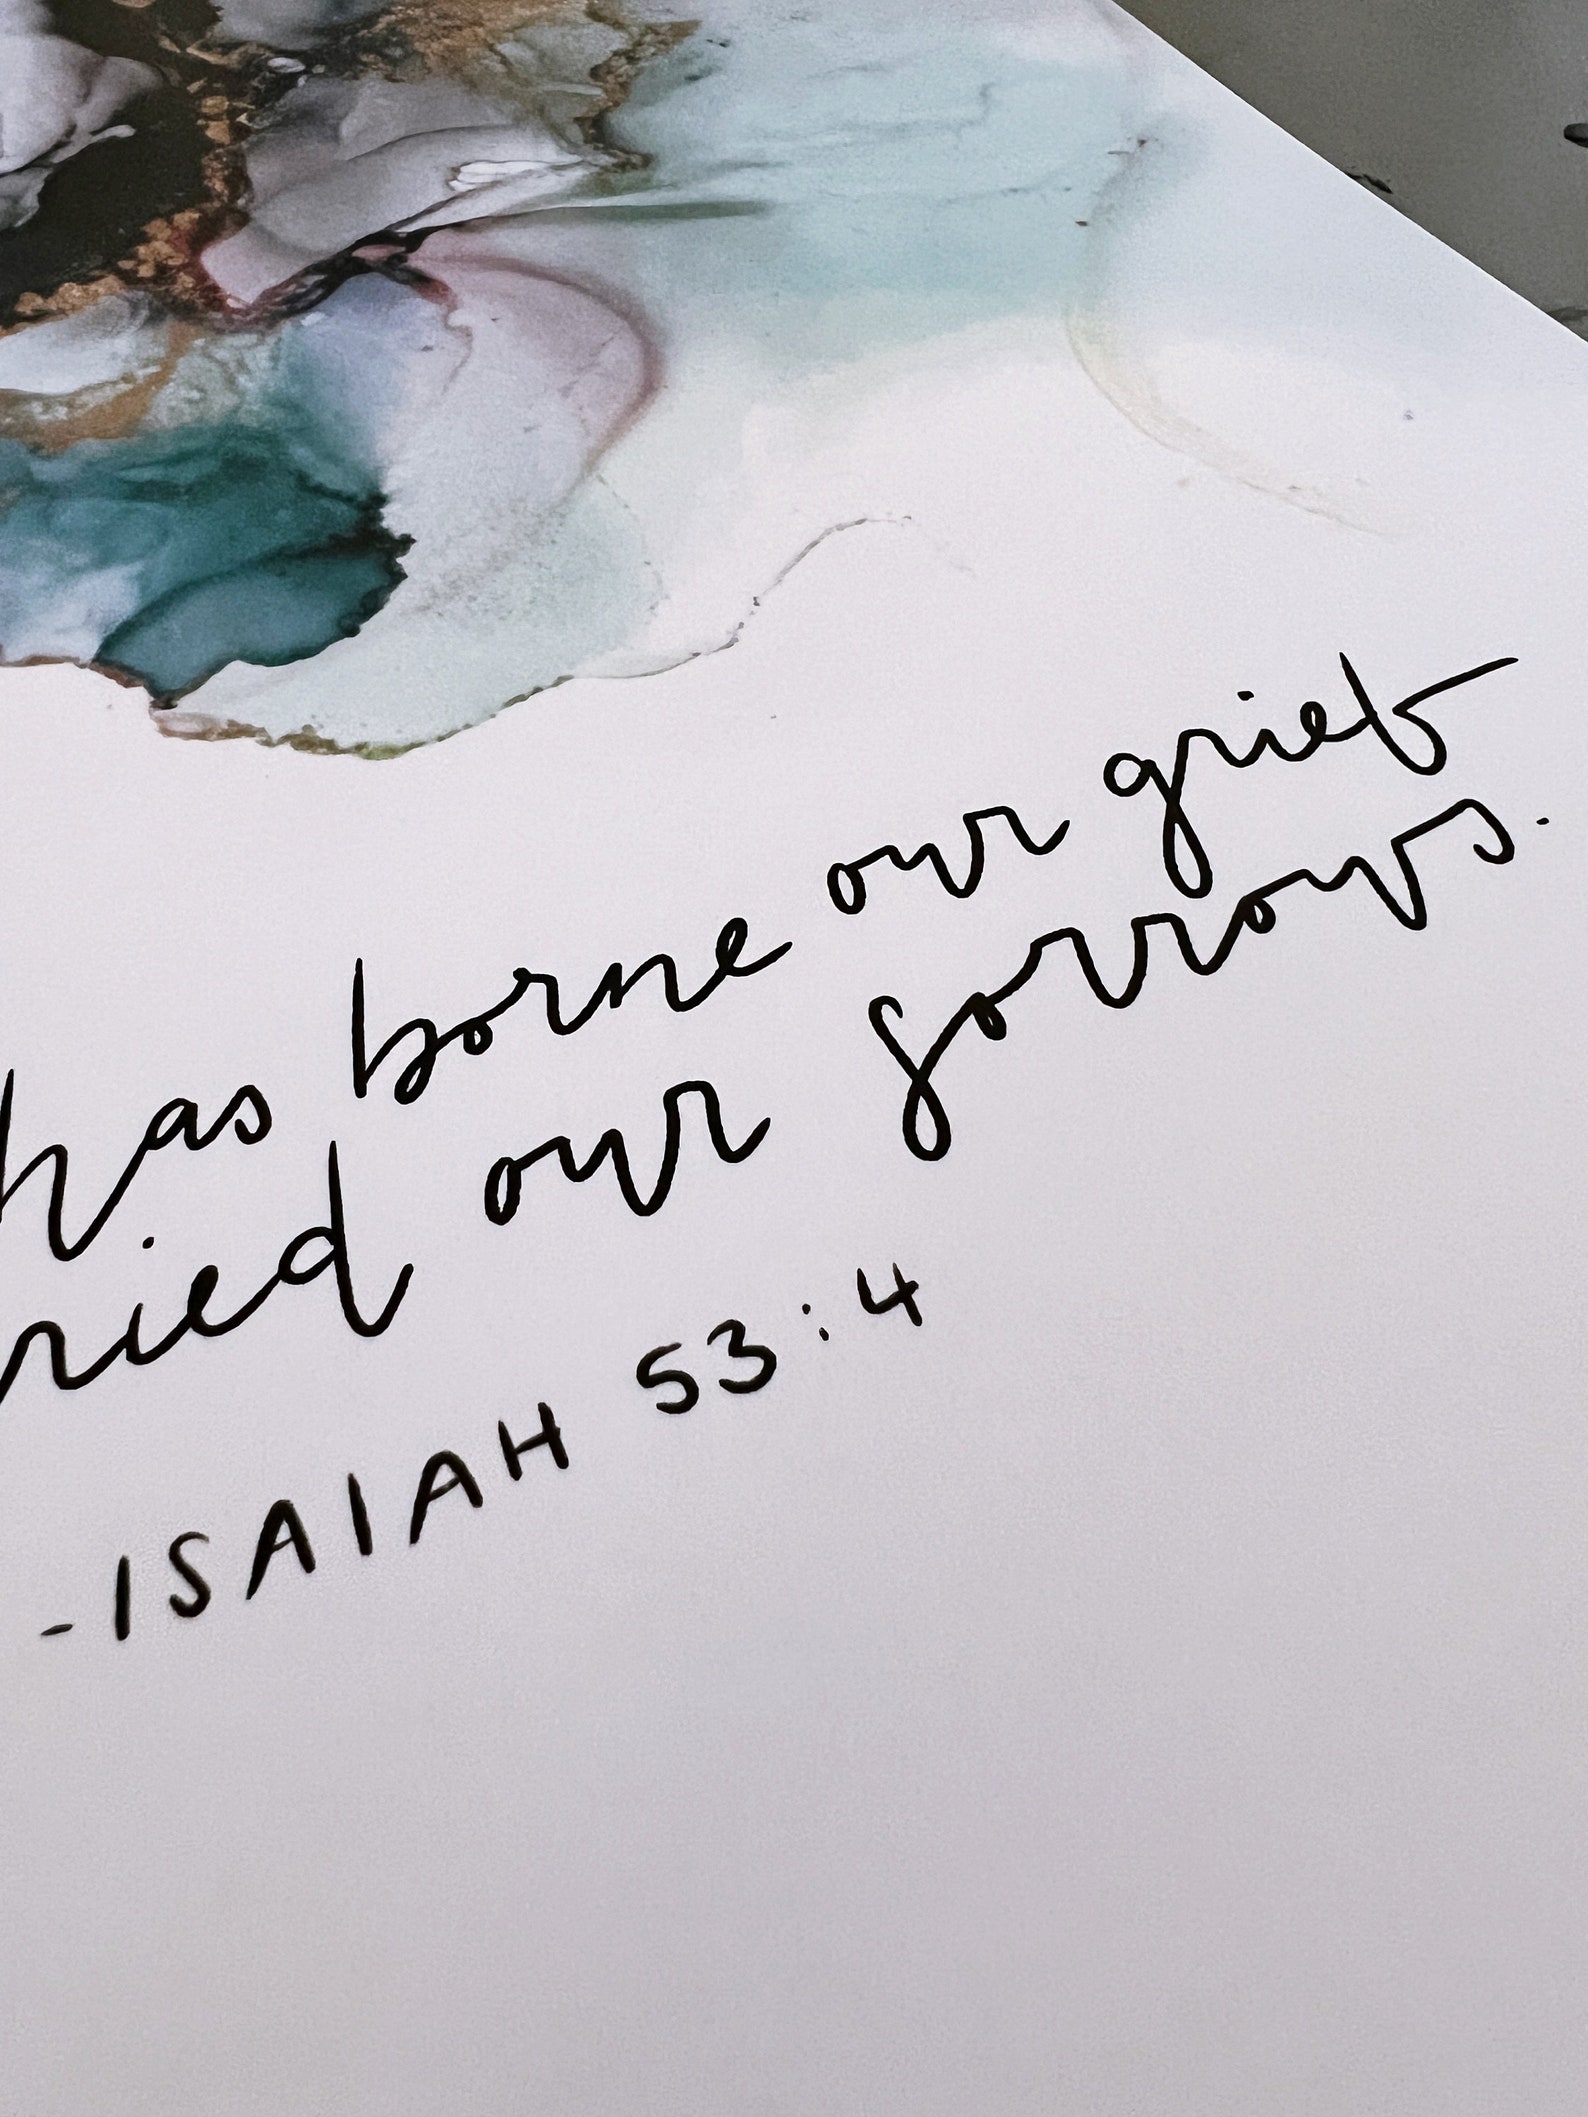 has borne our grief
ried our sorrows.
-ISAIAH 53:4